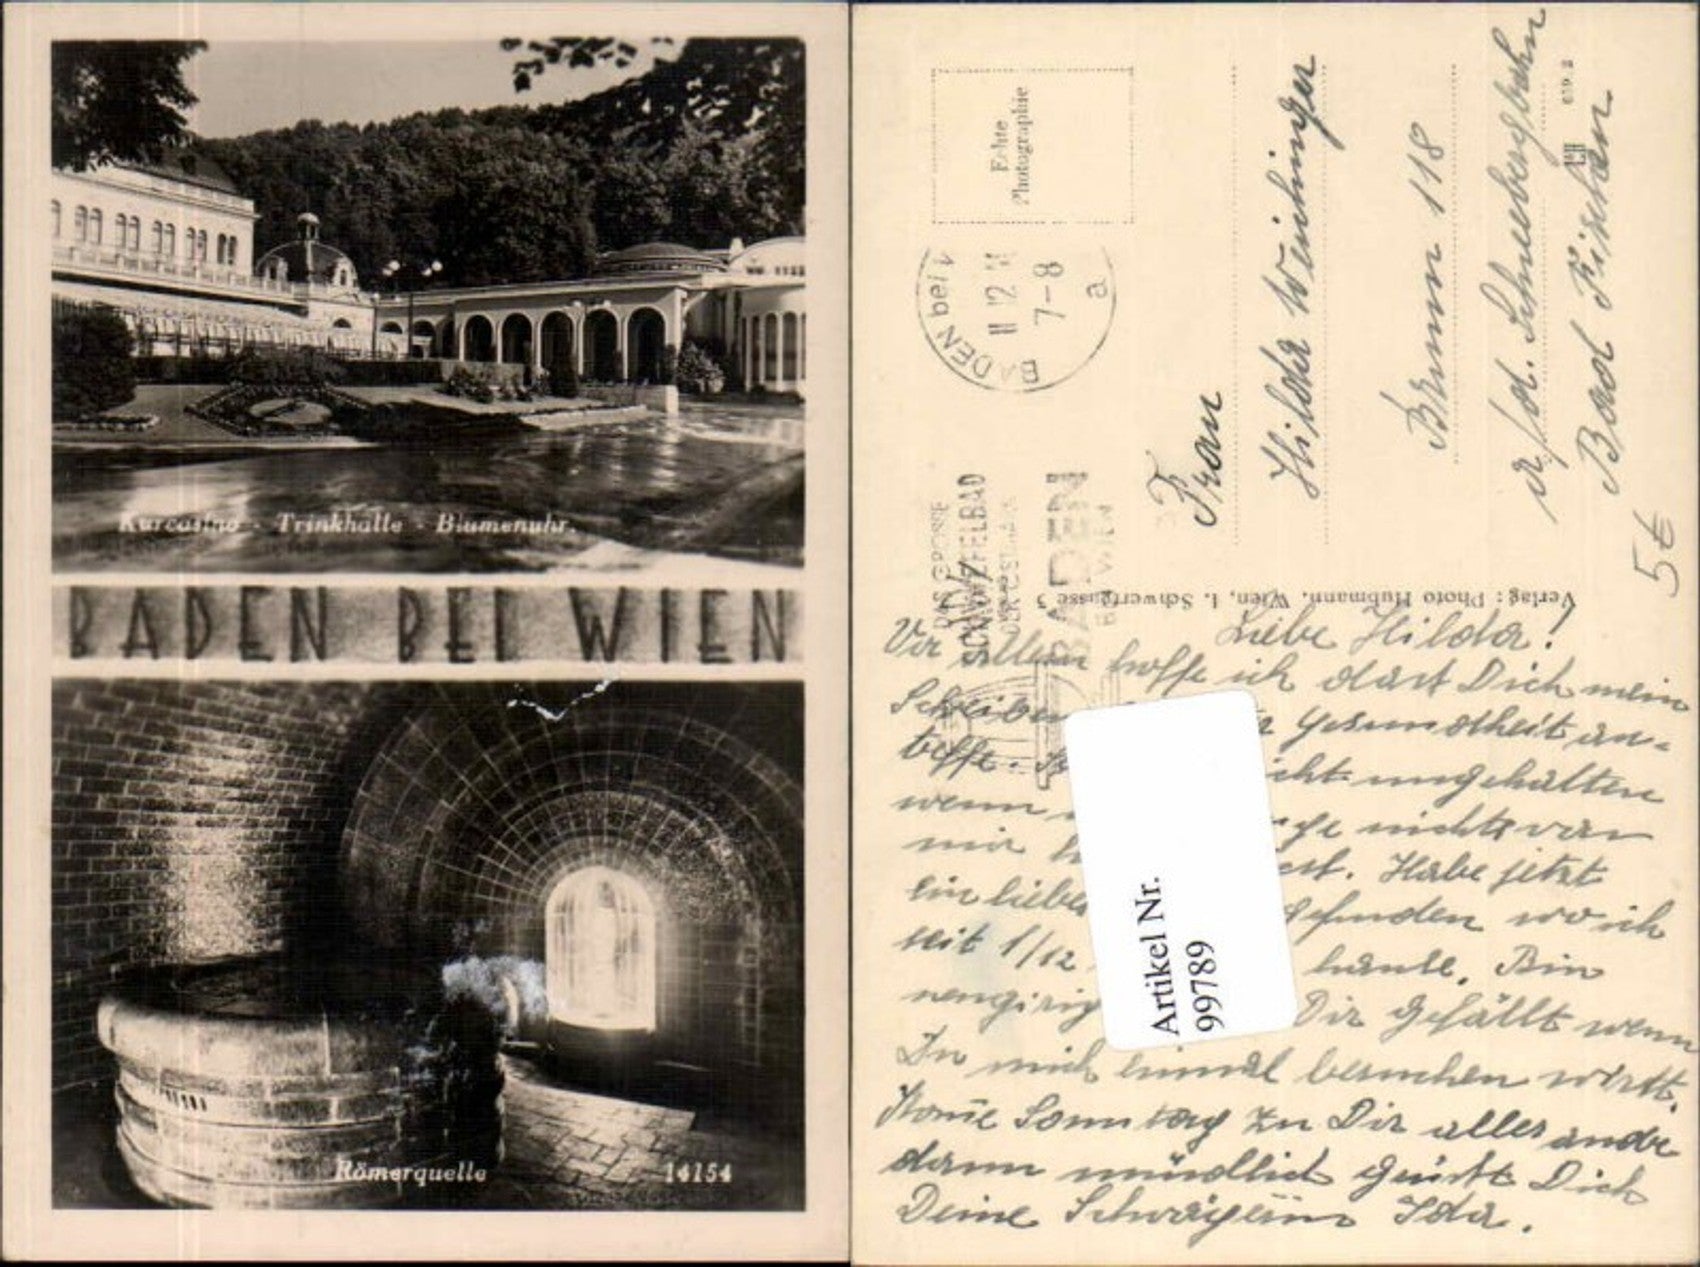 Kurcasino - Trinkhalle - Blumenuhr.
BADEN BEI WIEN
Römerquelle
14154
Echte
Photographie
BADEN bei
12
7-8
a
SCHWEFELBAD
BADEN
BEI WIEN
Verlag: Photo Hubmann, Wien, I. Schwertgasse 3
Frau
Hilda
Brunn 118
a/d. Schneebergbahn
Bad Fischau
5€
Liebe Hilda!
Vor allem hoffe ich dast Dich mein
Schreiben Gesundheit an-
treffe. ungehalten
wenn nichts von
mir Habe jetzt
ein liebes gefunden wo ich
seit 1/12 hause. Bin
neugirig Dir gefällt wenn
Du mich einmal besuchen wirst.
Kome Sonntag zu Dir alles andre
dann mündlich grüst Dich
Deine Schwägerin Ida.
Artikel Nr.
99789